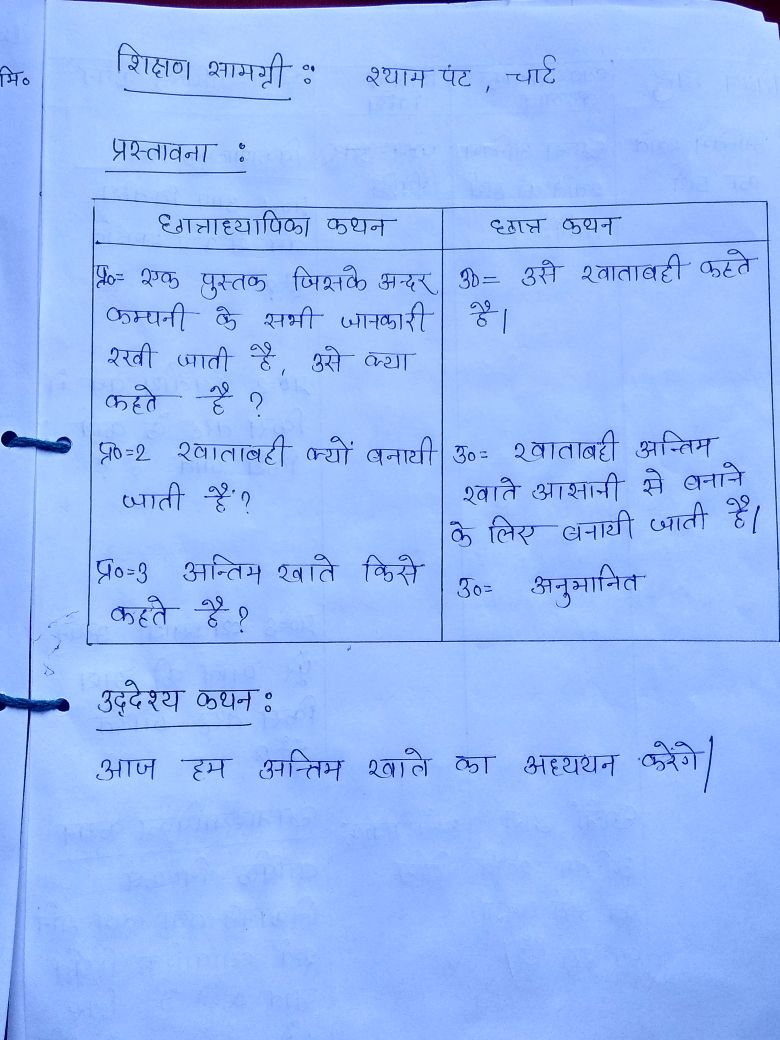 मि०
शिक्षण सामग्री : श्याम पट, चार्ट
प्रस्तावना :
छात्राध्यापिका कथन
छात्र कथन
प्र०= एक पुस्तक जिसके अन्दर
कम्पनी के सभी जानकारी
रखी जाती है, उसे क्या
कहते है ?
उ०= उसे खाताबही कहते
है।
प्र०=2 खाताबही क्यों बनायी
जाती हैं?
उ०= खाताबही अन्तिम
खाते आसानी से बनाने
के लिए बनायी जाती है।
प्र०=3 अन्तिम खाते किसे
कहते है?
उ०= अनुमानित
उद्देश्य कथन :
आज हम अन्तिम खाते का अध्ययन करेंगे।